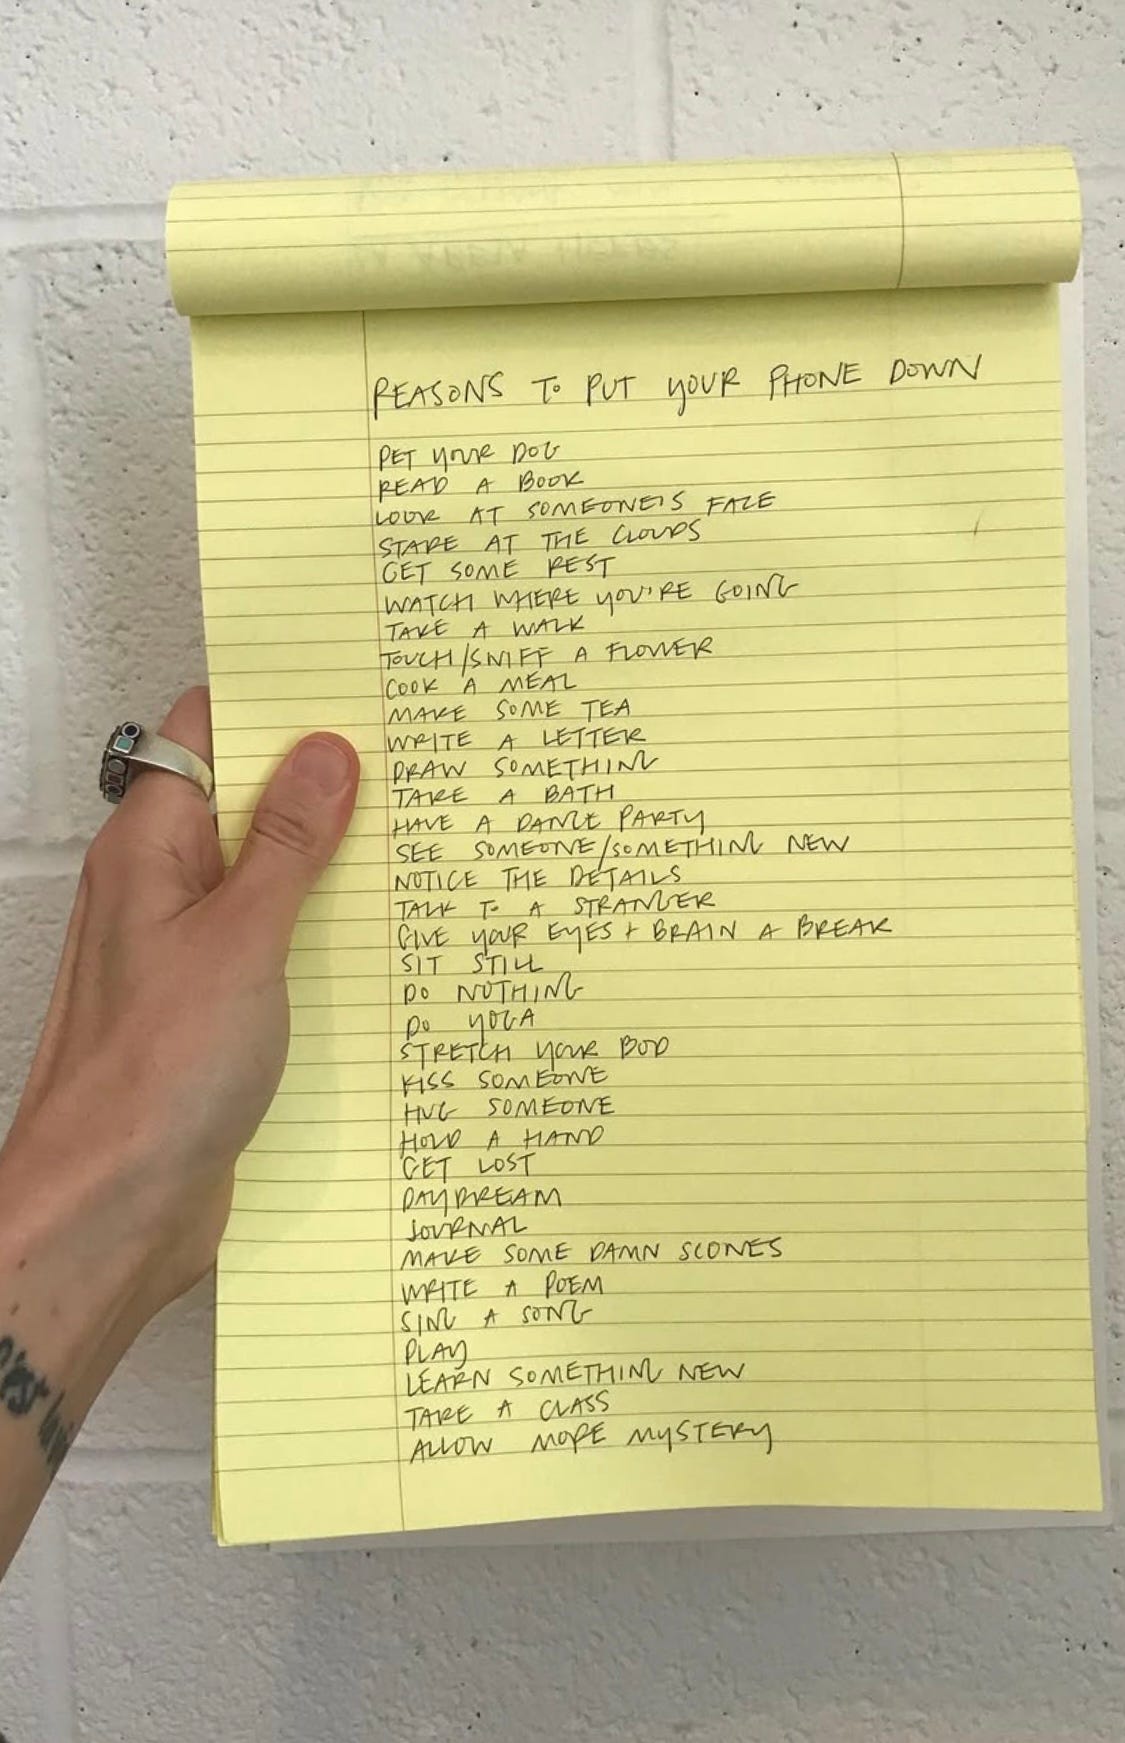 REASONS TO PUT YOUR PHONE DOWN
PET YOUR DOG
READ A BOOK
LOOK AT SOMEONE'S FACE
STARE AT THE CLOUDS
GET SOME REST
WATCH WHERE YOU'RE GOING
TAKE A WALK
TOUCH/SNIFF A FLOWER
COOK A MEAL
MAKE SOME TEA
WRITE A LETTER
DRAW SOMETHING
TAKE A BATH
HAVE A DANCE PARTY
SEE SOMEONE/SOMETHING NEW
NOTICE THE DETAILS
TALK TO A STRANGER
GIVE YOUR EYES + BRAIN A BREAK
SIT STILL
DO NOTHING
DO YOGA
STRETCH YOUR BOD
KISS SOMEONE
HUG SOMEONE
HOLD A HAND
GET LOST
DAYDREAM
JOURNAL
MAKE SOME DAMN SCONES
WRITE A POEM
SING A SONG
PLAY
LEARN SOMETHING NEW
TAKE A CLASS
ALLOW MORE MYSTERY